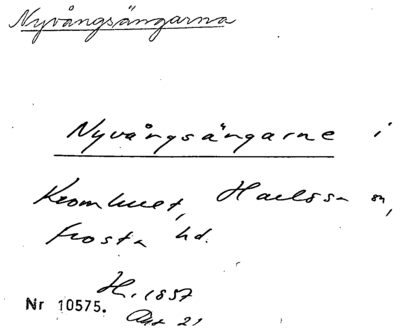 Nyvångsängarna
Nyvångsängarne i
Kromhuset, Harlösa sn,
Frosta hd.
H. 1857
Nr 10575.
Akt 21